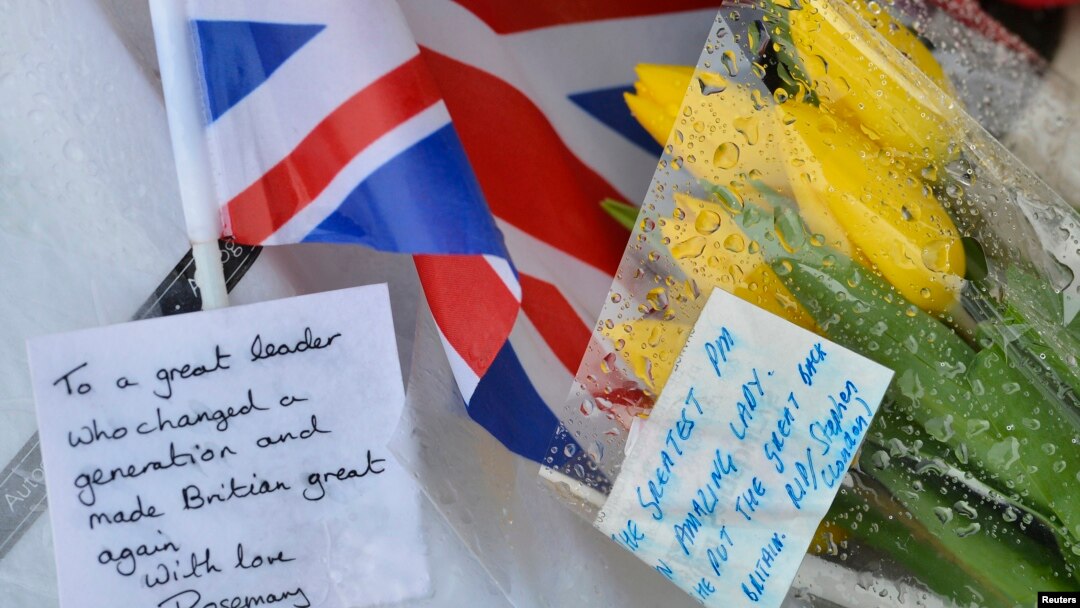 To a great leader
who changed a
generation and
made Britian great
again
With love
Rosemary
THE GREATEST PM
AN AMAZING LADY.
SHE PUT THE GREAT BACK
BRITAIN. RIP/ Stephen
(London)
Auto
Reuters